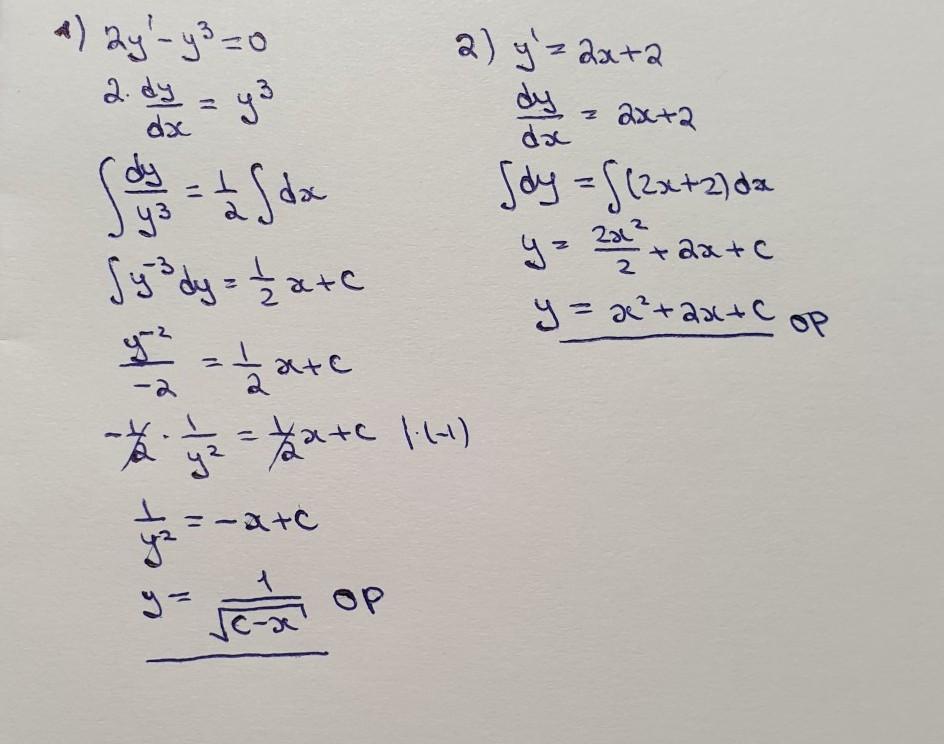 1) 2y' - y³ = 0
2 · dy/dx = y³
∫ dy/y³ = 1/2 ∫ dx
∫ y⁻³ dy = 1/2 x + C
y⁻²/-2 = 1/2 x + C
-1/2 · 1/y² = 1/2 x + C |·(-1)
1/y² = -x + C
y = 1/√(C-x) OP
2) y' = 2x + 2
dy/dx = 2x + 2
∫ dy = ∫ (2x + 2) dx
y = 2x²/2 + 2x + C
y = x² + 2x + C OP